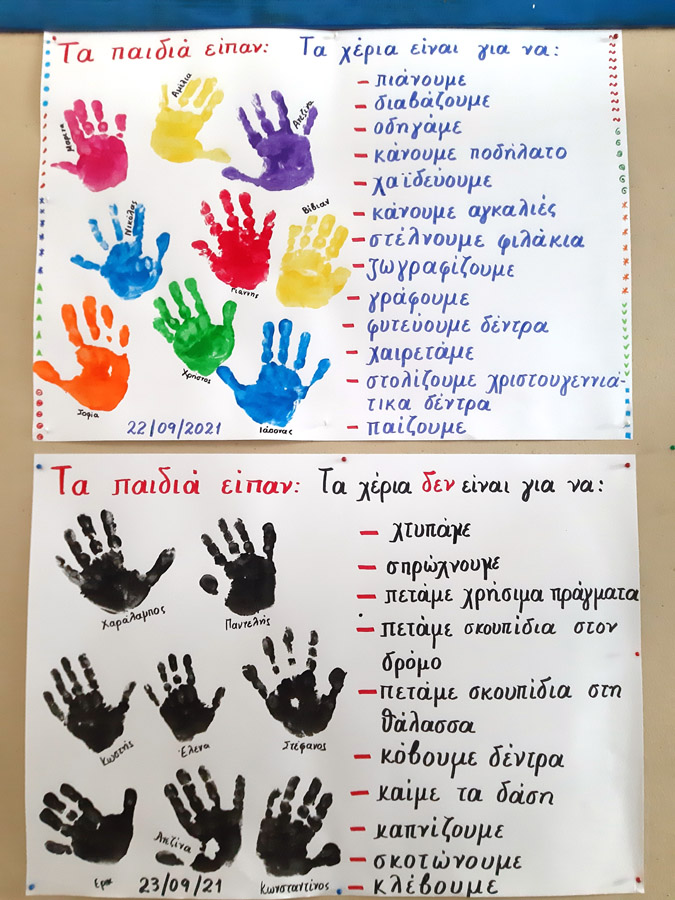 Τα παιδιά είπαν: Τα χέρια είναι για να:
– πιάνουμε
– διαβάζουμε
– οδηγάμε
– κάνουμε ποδήλατο
– χαϊδεύουμε
– κάνουμε αγκαλιές
– στέλνουμε φιλάκια
– ζωγραφίζουμε
– γράφουμε
– φυτεύουμε δέντρα
– χαιρετάμε
– στολίζουμε χριστουγεννιά-
τικα δέντρα
– παίζουμε
Αμίλια
Ατζίνα
Νικόλας
Βίβιαν
Γιάννης
Χρήστος
Σοφία
Ιάσονας
22/09/2021
Τα παιδιά είπαν: Τα χέρια δεν είναι για να:
– χτυπάμε
– σπρώχνουμε
– πετάμε χρήσιμα πράγματα
– πετάμε σκουπίδια στον
δρόμο
– πετάμε σκουπίδια στη
θάλασσα
– κόβουμε δέντρα
– καίμε τα δάση
– καπνίζουμε
– σκοτώνουμε
– κλέβουμε
Χαράλαμπος
Παντελής
Κωστής
Έλενα
Στέφανος
Ατζίνα
Κωνσταντίνος
23/09/21